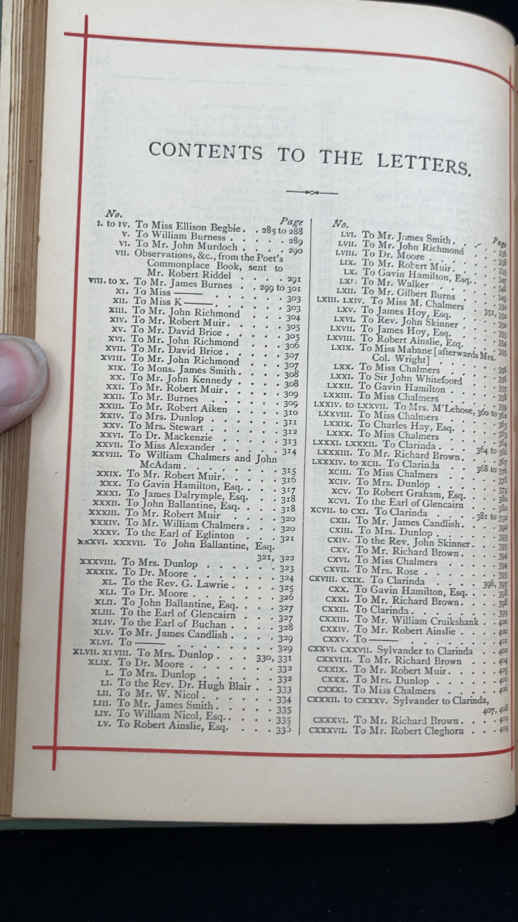 CONTENTS TO THE LETTERS.
No. Page
I. to IV. To Miss Ellison Begbie. . 285 to 288
V. To William Burness . . . . . 289
VI. To Mr. John Murdoch . . . . . 290
VII. Observations, &c., from the Poet's
Commonplace Book, sent to
Mr. Robert Riddel . . . . . 291
VIII. to X. To Mr. James Burnes . . 299 to 301
XI. To Miss —— . . . . . 303
XII. To Miss K—— . . . . . 303
XIII. To Mr. John Richmond . . . . 304
XIV. To Mr. Robert Muir. . . . . 305
XV. To Mr. David Brice . . . . . 305
XVI. To Mr. John Richmond . . . . 306
XVII. To Mr. David Brice . . . . . 307
XVIII. To Mr. John Richmond . . . . 307
XIX. To Mons. James Smith . . . . 308
XX. To Mr. John Kennedy . . . . 308
XXI. To Mr. Robert Muir . . . . . 309
XXII. To Mr. Burnes . . . . . 309
XXIII. To Mr. Robert Aiken . . . . 310
XXIV. To Mrs. Dunlop . . . . . 311
XXV. To Mrs. Stewart . . . . . 312
XXVI. To Dr. Mackenzie . . . . . 313
XXVII. To Miss Alexander . . . . . 314
XXVIII. To William Chalmers and John
McAdam . . . . . 315
XXIX. To Mr. Robert Muir. . . . . 316
XXX. To Gavin Hamilton, Esq. . . . 317
XXXI. To James Dalrymple, Esq. . . . 318
XXXII. To John Ballantine, Esq. . . . 318
XXXIII. To Mr. Robert Muir . . . . . 320
XXXIV. To Mr. William Chalmers . . . . 320
XXXV. To the Earl of Eglinton . . . . 321
XXXVI. XXXVII. To John Ballantine, Esq.
321, 322
XXXVIII. To Mrs. Dunlop . . . . . 323
XXXIX. To Dr. Moore . . . . . 324
XL. To the Rev. G. Lawrie . . . . 325
XLI. To Dr. Moore . . . . . 326
XLII. To John Ballantine, Esq. . . . 327
XLIII. To the Earl of Glencairn . . . 327
XLIV. To the Earl of Buchan . . . . 328
XLV. To Mr. James Candlish . . . . 329
XLVI. To —— . . . . . 329
XLVII. XLVIII. To Mrs. Dunlop . . . 330, 331
XLIX. To Dr. Moore . . . . . 332
L. To Mrs. Dunlop . . . . . 332
LI. To the Rev. Dr. Hugh Blair . . . 333
LII. To Mr. W. Nicol . . . . . 334
LIII. To Mr. James Smith . . . . . 335
LIV. To William Nicol, Esq. . . . . 335
LV. To Robert Ainslie, Esq. . . . 336
No. Page
LVI. To Mr. James Smith . . . .
LVII. To Mr. John Richmond . . . .
LVIII. To Dr. Moore . . . .
LIX. To Mr. Robert Muir . . . .
LX. To Gavin Hamilton, Esq. . . .
LXI. To Mr. Walker . . . .
LXII. To Mr. Gilbert Burns . . . .
LXIII. LXIV. To Miss M. Chalmers . . .
LXV. To James Hoy, Esq. . . .
LXVI. To Rev. John Skinner . . .
LXVII. To James Hoy, Esq. . . .
LXVIII. To Robert Ainslie, Esq. . . .
LXIX. To Miss Mabane [afterwards Mrs.
Col. Wright] . . . .
LXX. To Miss Chalmers . . . .
LXXI. To Sir John Whitefoord . . .
LXXII. To Gavin Hamilton . . . .
LXXIII. To Miss Chalmers . . . .
LXXIV. to LXXVII. To Mrs. M'Lehose,
LXXVIII. To Miss Chalmers . . . .
LXXIX. To Charles Hay, Esq. . . .
LXXX. To Miss Chalmers . . . .
LXXXI. LXXXII. To Clarinda . . .
LXXXIII. To Mr. Richard Brown . . .
LXXXIV. to XCII. To Clarinda
XCIII. To Miss Chalmers . . . .
XCIV. To Mrs. Dunlop . . . .
XCV. To Robert Graham, Esq. . . .
XCVI. To the Earl of Glencairn . . .
XCVII. to CXI. To Clarinda . . .
CXII. To Mr. James Candlish . . .
CXIII. To Mrs. Dunlop . . . .
CXIV. To the Rev. John Skinner . . .
CXV. To Mr. Richard Brown . . .
CXVI. To Miss Chalmers . . . .
CXVII. To Mrs. Rose . . . .
CVIII. CXIX. To Clarinda . . .
CXX. To Gavin Hamilton, Esq. . . .
CXXI. To Mr. Richard Brown . . .
CXXII. To Clarinda . . . .
CXXIII. To Mr. William Cruikshank . .
CXXIV. To Mr. Robert Ainslie . . .
CXXV. To —— . . . .
CXXVI. CXXVII. Sylvander to Clarinda
CXXVIII. To Mr. Richard Brown . . .
CXXIX. To Mr. Robert Muir . . .
CXXX. To Mrs. Dunlop . . . .
CXXXI. To Miss Chalmers . . . .
CXXXII. to CXXXV. Sylvander to Clarinda,
407, 408
CXXXVI. To Mr. Richard Brown . . .
CXXXVII. To Mr. Robert Cleghorn . . .